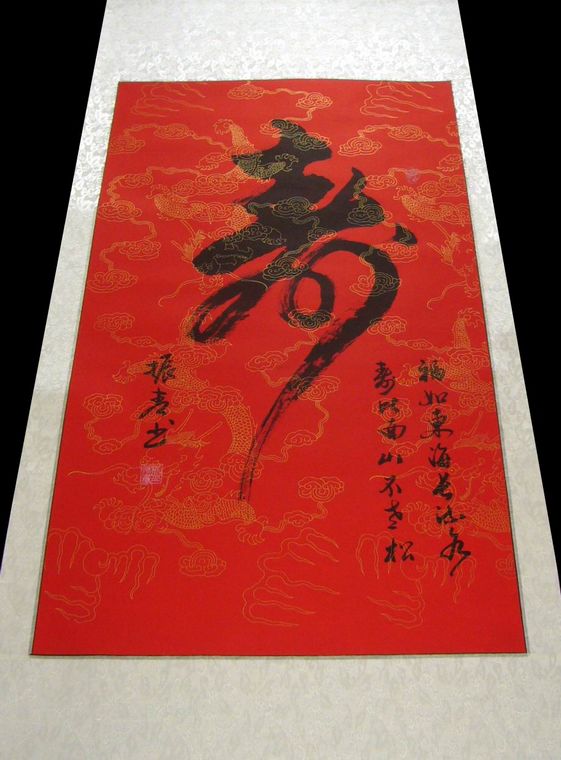 寿
福如東海长流水
寿比南山不老松
振书